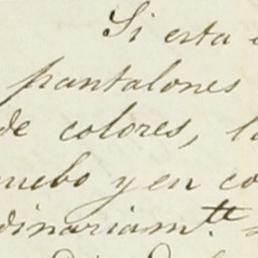 Si esta
pantalones
de colores,
nuebo y en co
dinariam.te